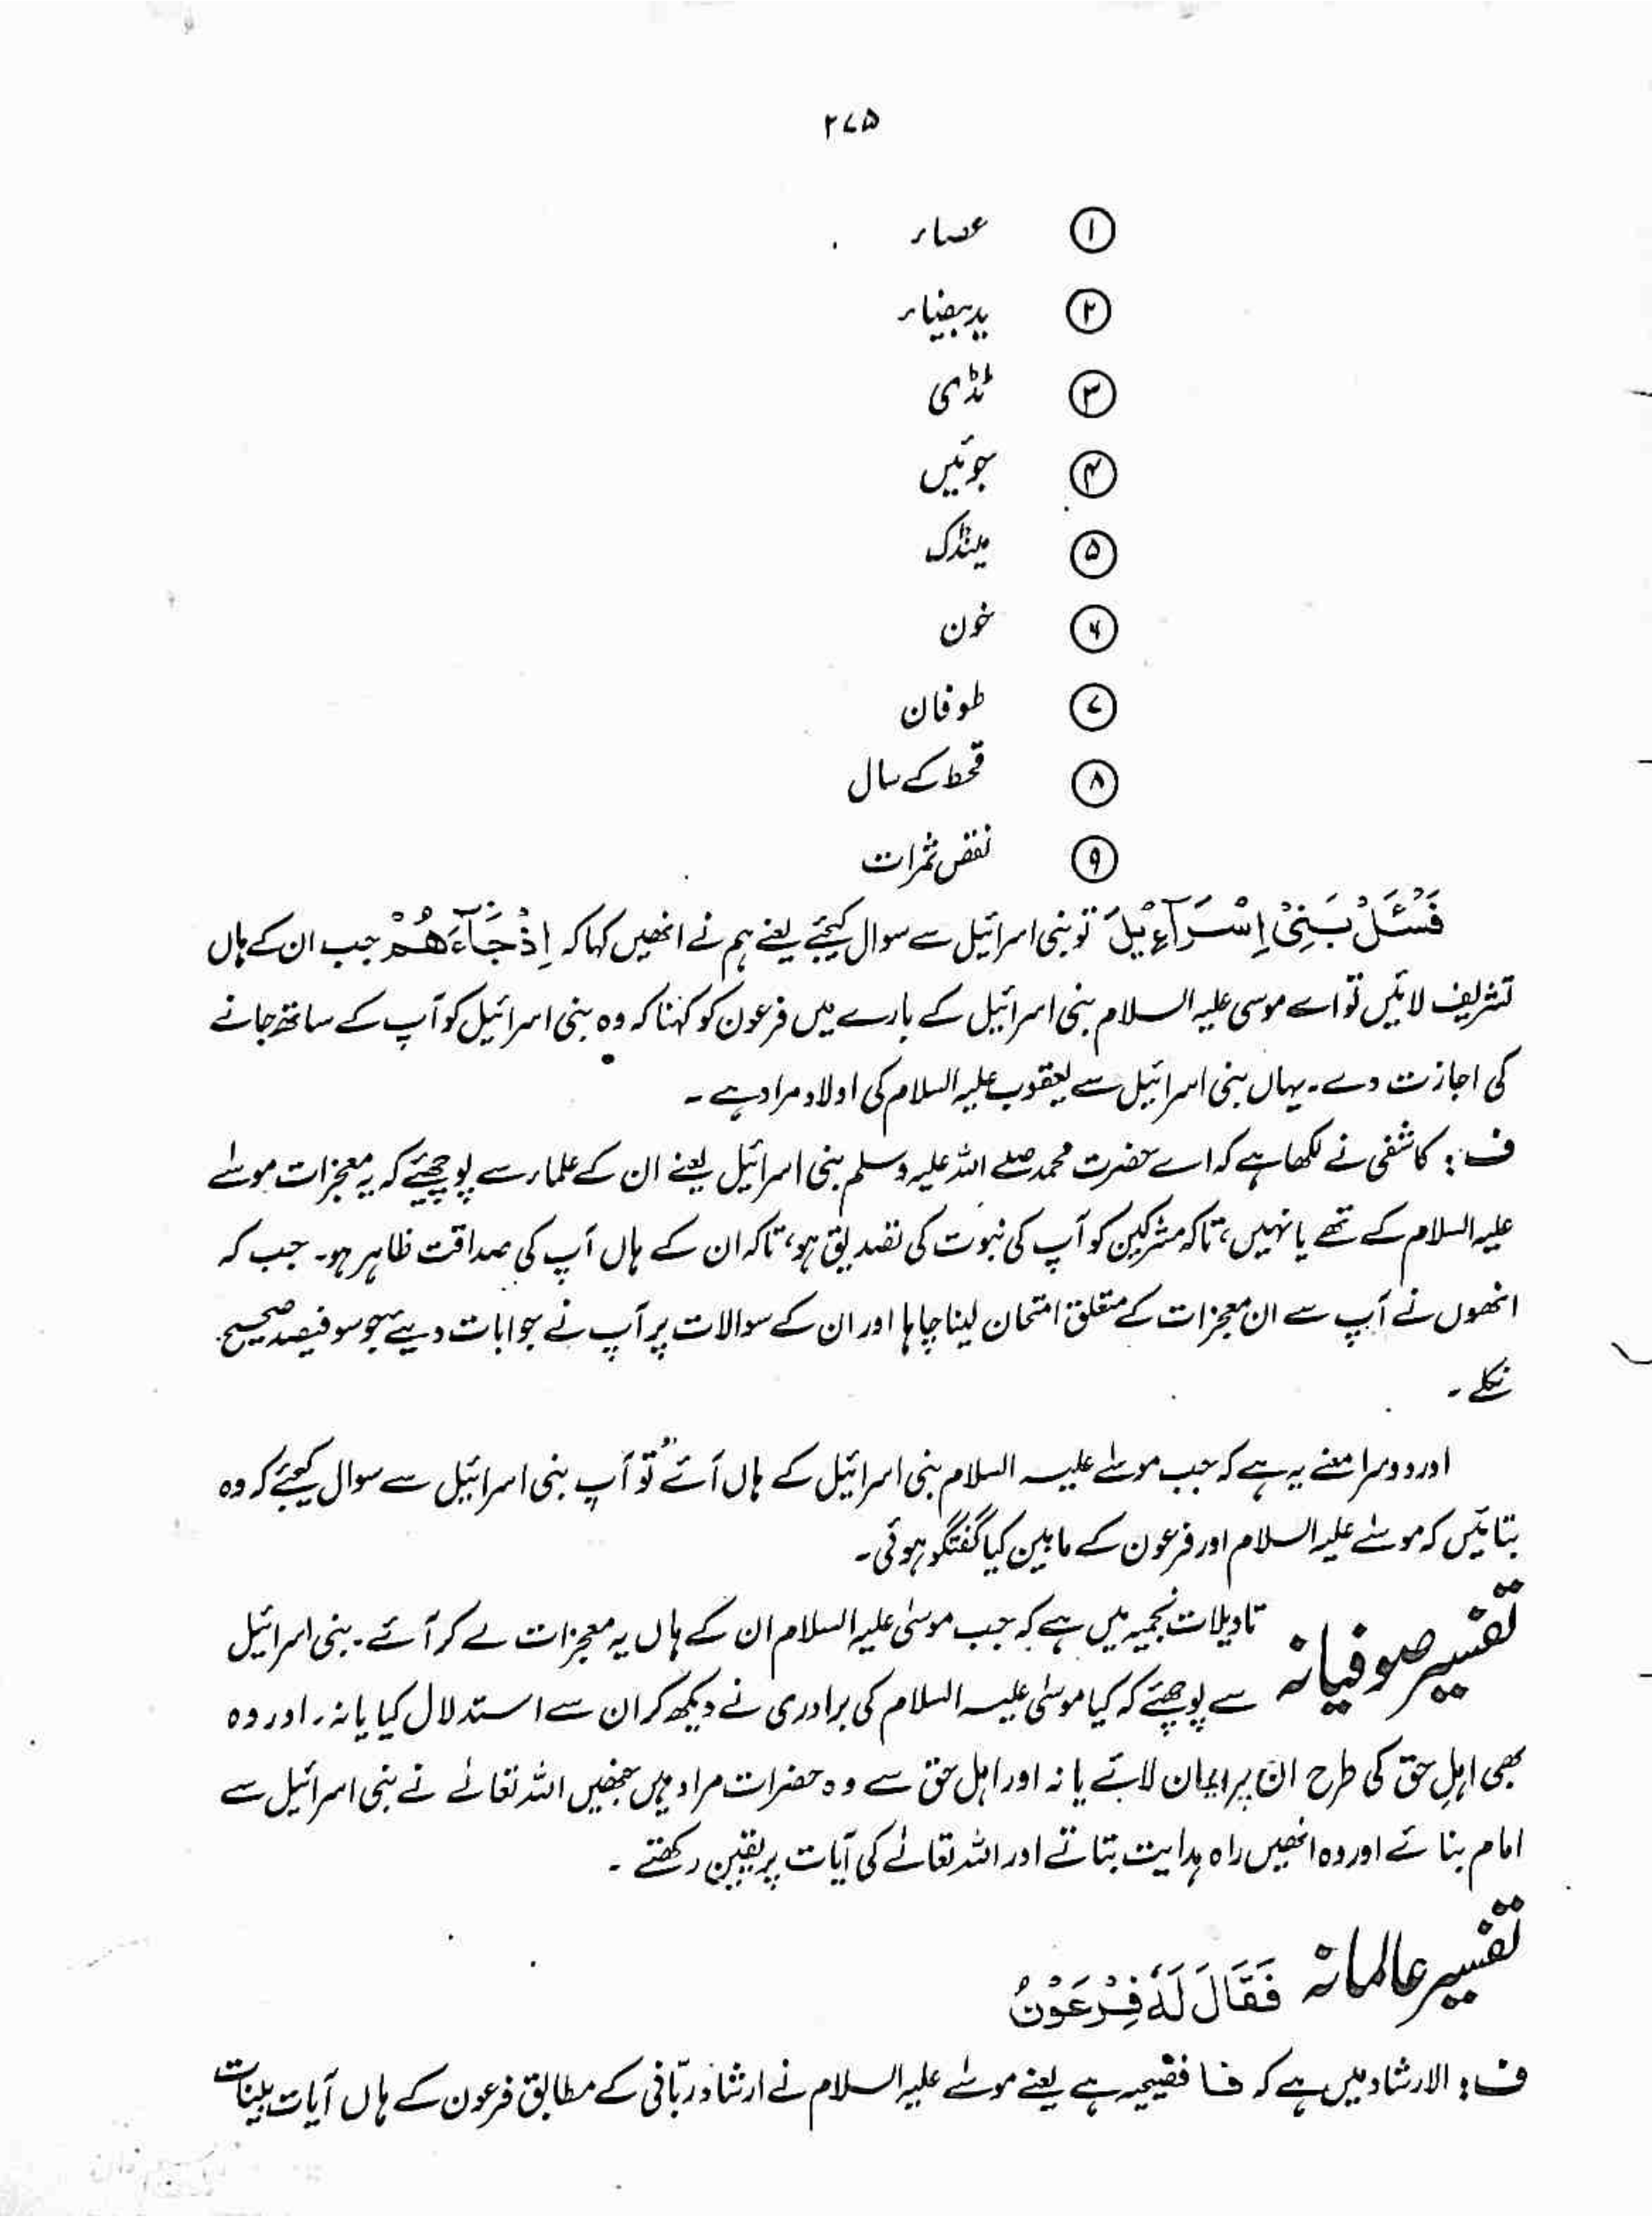 ۲۷۵
① عصاء
② یدبیضاء
③ ٹڈی
④ جوئیں
⑤ مینڈک
⑥ خون
⑦ طوفان
⑧ قحط کے سال
⑨ نقص ثمرات
فَسْئَلْ بَنِیْ اِسْرَآءِیْلَ تو بنی اسرائیل سے سوال کیجئے یعنے ہم نے انھیں کہا کہ اِذْ جَآءَهُمْ جب ان کے ہاں
تشریف لائیں تو اے موسی علیہ السلام بنی اسرائیل کے بارے میں فرعون کو کہنا کہ وہ بنی اسرائیل کو آپ کے ساتھ جانے
کی اجازت دے ۔ یہاں بنی اسرائیل سے یعقوب علیہ السلام کی اولاد مراد ہے ۔
ف : کاشفی نے لکھا ہے کہ اے حضرت محمد صلے اللہ علیہ وسلم بنی اسرائیل یعنے ان کے علماء سے پوچھئے کہ یہ معجزات موسٰے
علیہ السلام کے تھے یا نہیں ، تاکہ مشرکین کو آپ کی نبوت کی تصدیق ہو ، تاکہ ان کے ہاں آپ کی صداقت ظاہر ہو ۔ جب کہ
انھوں نے آپ سے ان معجزات کے متعلق امتحان لینا چاہا اور ان کے سوالات پر آپ نے جوابات دیے جو سو فیصد صحیح
نکلے ۔
اور دوسرا معنے یہ ہے کہ جب موسٰے علیہ السلام بنی اسرائیل کے ہاں آئے تو آپ بنی اسرائیل سے سوال کیجئے کہ وہ
بتائیں کہ موسٰے علیہ السلام اور فرعون کے مابین کیا گفتگو ہوئی ۔
تفسیر صوفیانہ تاویلات نجمیہ میں ہے کہ جب موسٰی علیہ السلام ان کے ہاں یہ معجزات لے کر آئے ۔ بنی اسرائیل
سے پوچھئے کہ کیا موسٰی علیہ السلام کی برادری نے دیکھ کر ان سے استدلال کیا یا نہ ۔ اور وہ
بھی اہلِ حق کی طرح ان پر ایمان لائے یا نہ اور اہل حق سے وہ حضرات مراد ہیں جنھیں اللہ تعالٰے نے بنی اسرائیل سے
امام بنائے اور وہ انھیں راہ ہدایت بتاتے اور اللہ تعالٰے کی آیات پر یقین رکھتے ۔
تفسیر عالمانہ فَقَالَ لَهٗ فِرْعَوْنُ
ف : الارشاد میں ہے کہ فا فصیحیہ ہے یعنے موسٰے علیہ السلام نے ارشاد ربّانی کے مطابق فرعون کے ہاں آیات بینات